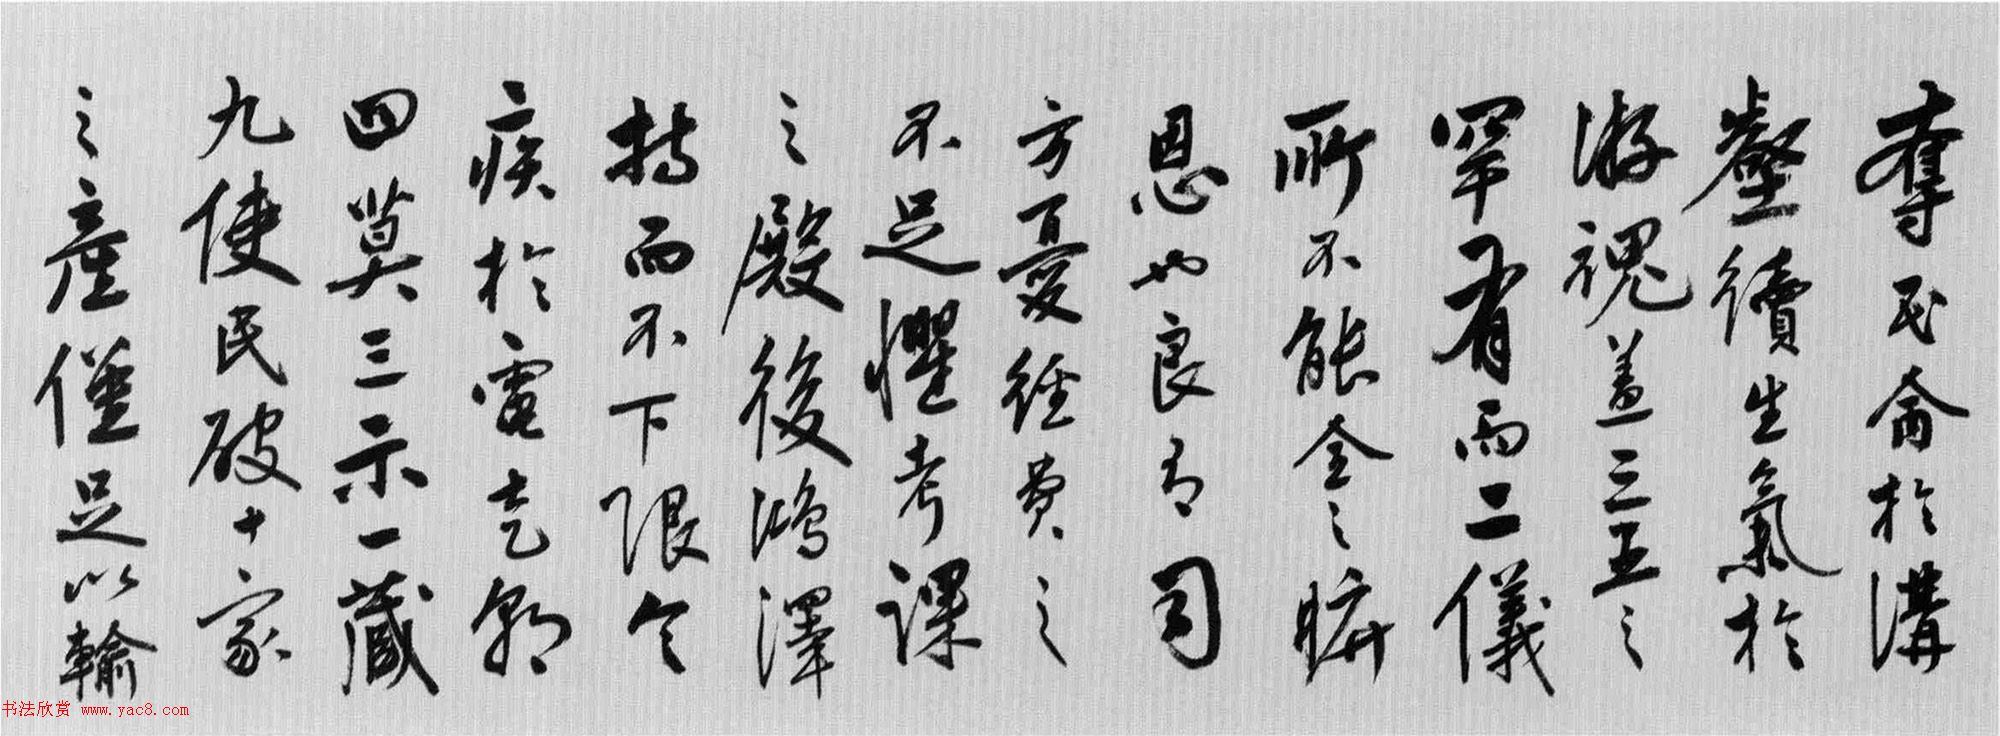 奪民命於溝
壑續生氣於
游魂蓋三五之
罕有而二儀
所不能全之
恩也良有司
方憂經費之
不足懼考課
之殿後鴻澤
持而不下限令
疾於電走朝
四莫三示一藏
九使民破十家
之產僅足以輸
书法欣赏 www.yac8.com